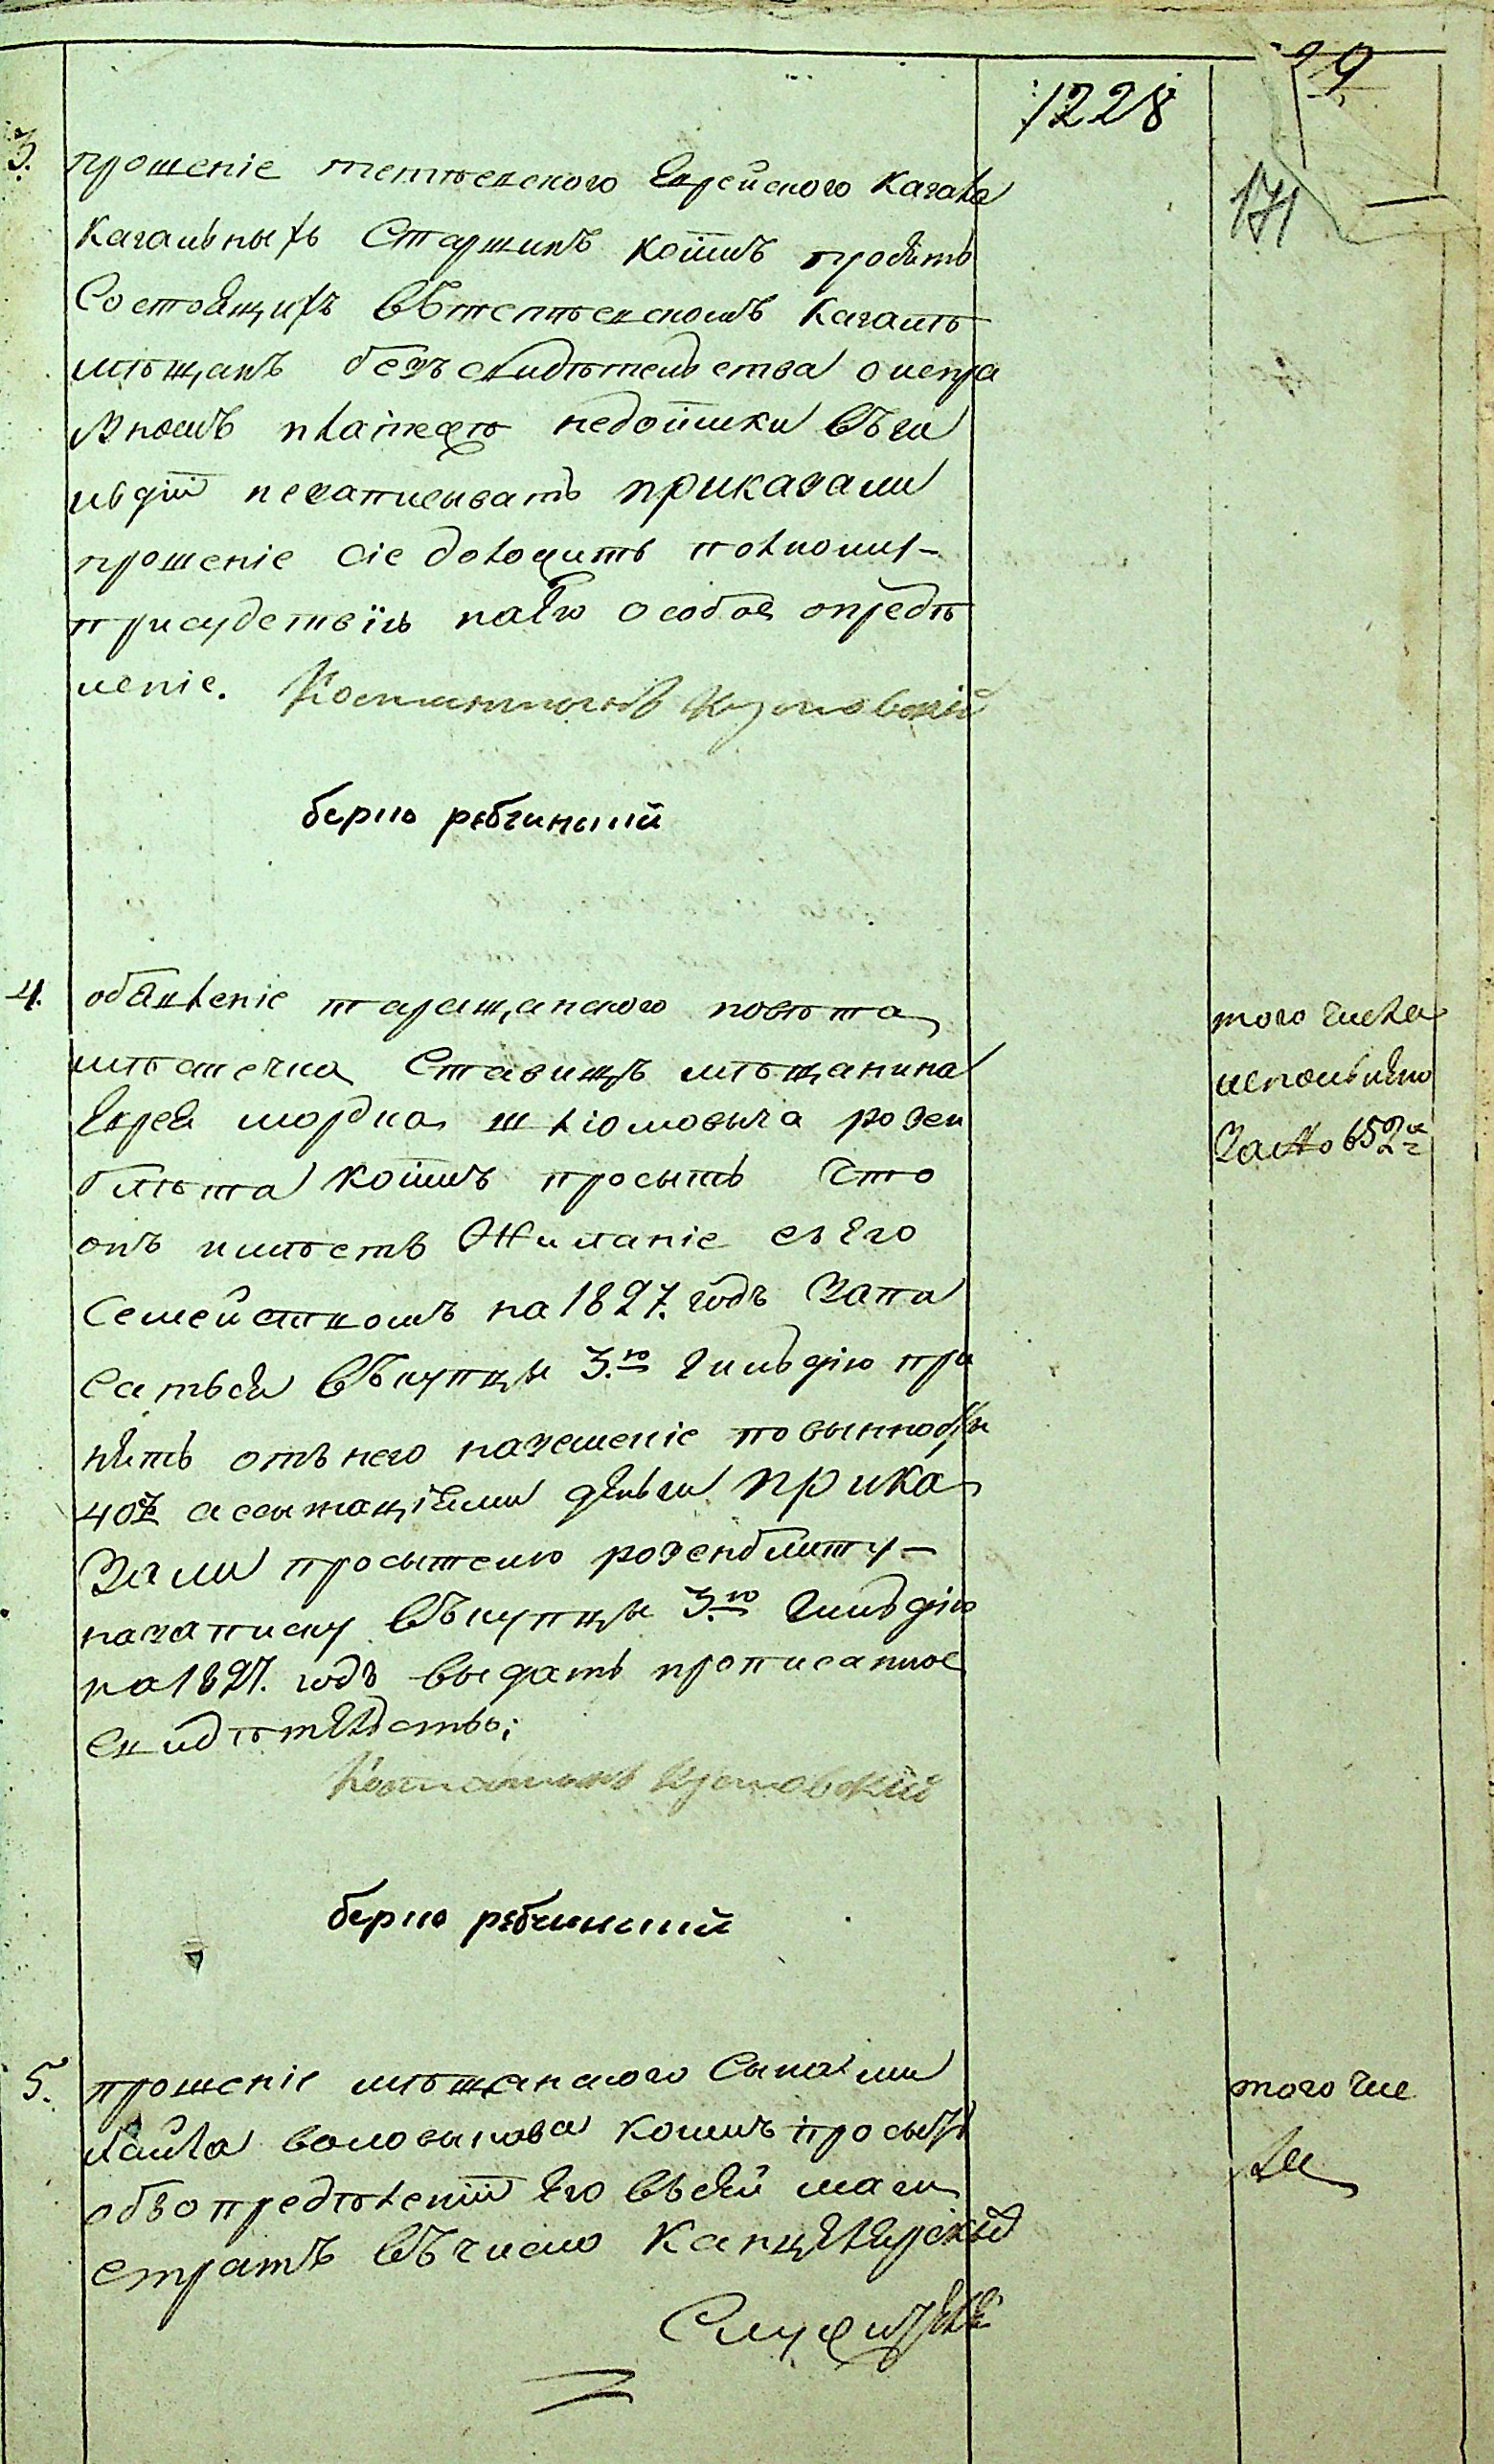 1228
29
171
3. прошеніе тетіевского Еврейского Кагала
Кагальныхъ Старшинъ коимъ просятъ
Состоящихъ въ тетіевскомъ Кагалѣ
мѣщанъ безъ свидѣтельства о испра
вномъ платежѣ недоимки въ ги
льдіи незаписывать приказали
прошеніе сіе доложить полному
присудствію на Его особое опредѣ
леніе.
берко рябчинский
4. обявленіе таращанского повѣта
мѣстечка Ставищъ мѣщанина
Еврея мордка шліомовыча розен
блита коимъ просытъ что
онъ имѣетъ Желаніе съ Его
Семействомъ на 1827. годъ Запи
саться въ купцы 3.ю гильдію при
нять отъ него повынности
40 ассыгнаціями деньги прика
зали просытелю розенблиту
на записку въ купцы 3.ю гильдію
на 1827. годъ выдать прописанное
свидѣтельство;
берко рябчинский
того числа
исполнено
За № 652
5. прошеніе мѣщанского Сына ми
хайла коимъ просытъ
объ опредѣленіи Его въ сей маги
стратъ въ число Канцелярскихъ
Служителей
того чис
ла